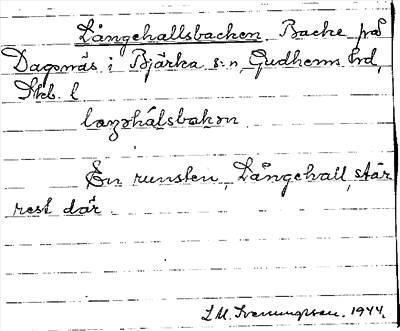 Långehallsbacken. Backe på
Dagsnäs i Bjärka s:n, Gudhems hd,
Skb. l.
laŋəhálsbakən
En runsten, Långehall, står
rest där.
L.M. Svenungsson. 1944.